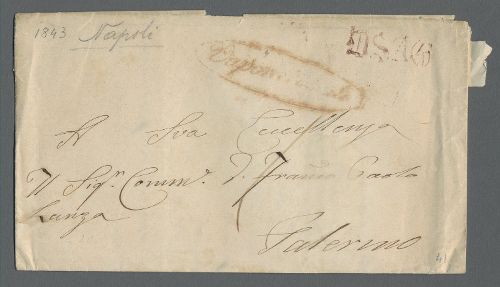 1843 Napoli
A Sua Eccellenza
Il Sigr. Commr. D. Franco Paolo
Lanza
Palermo
41